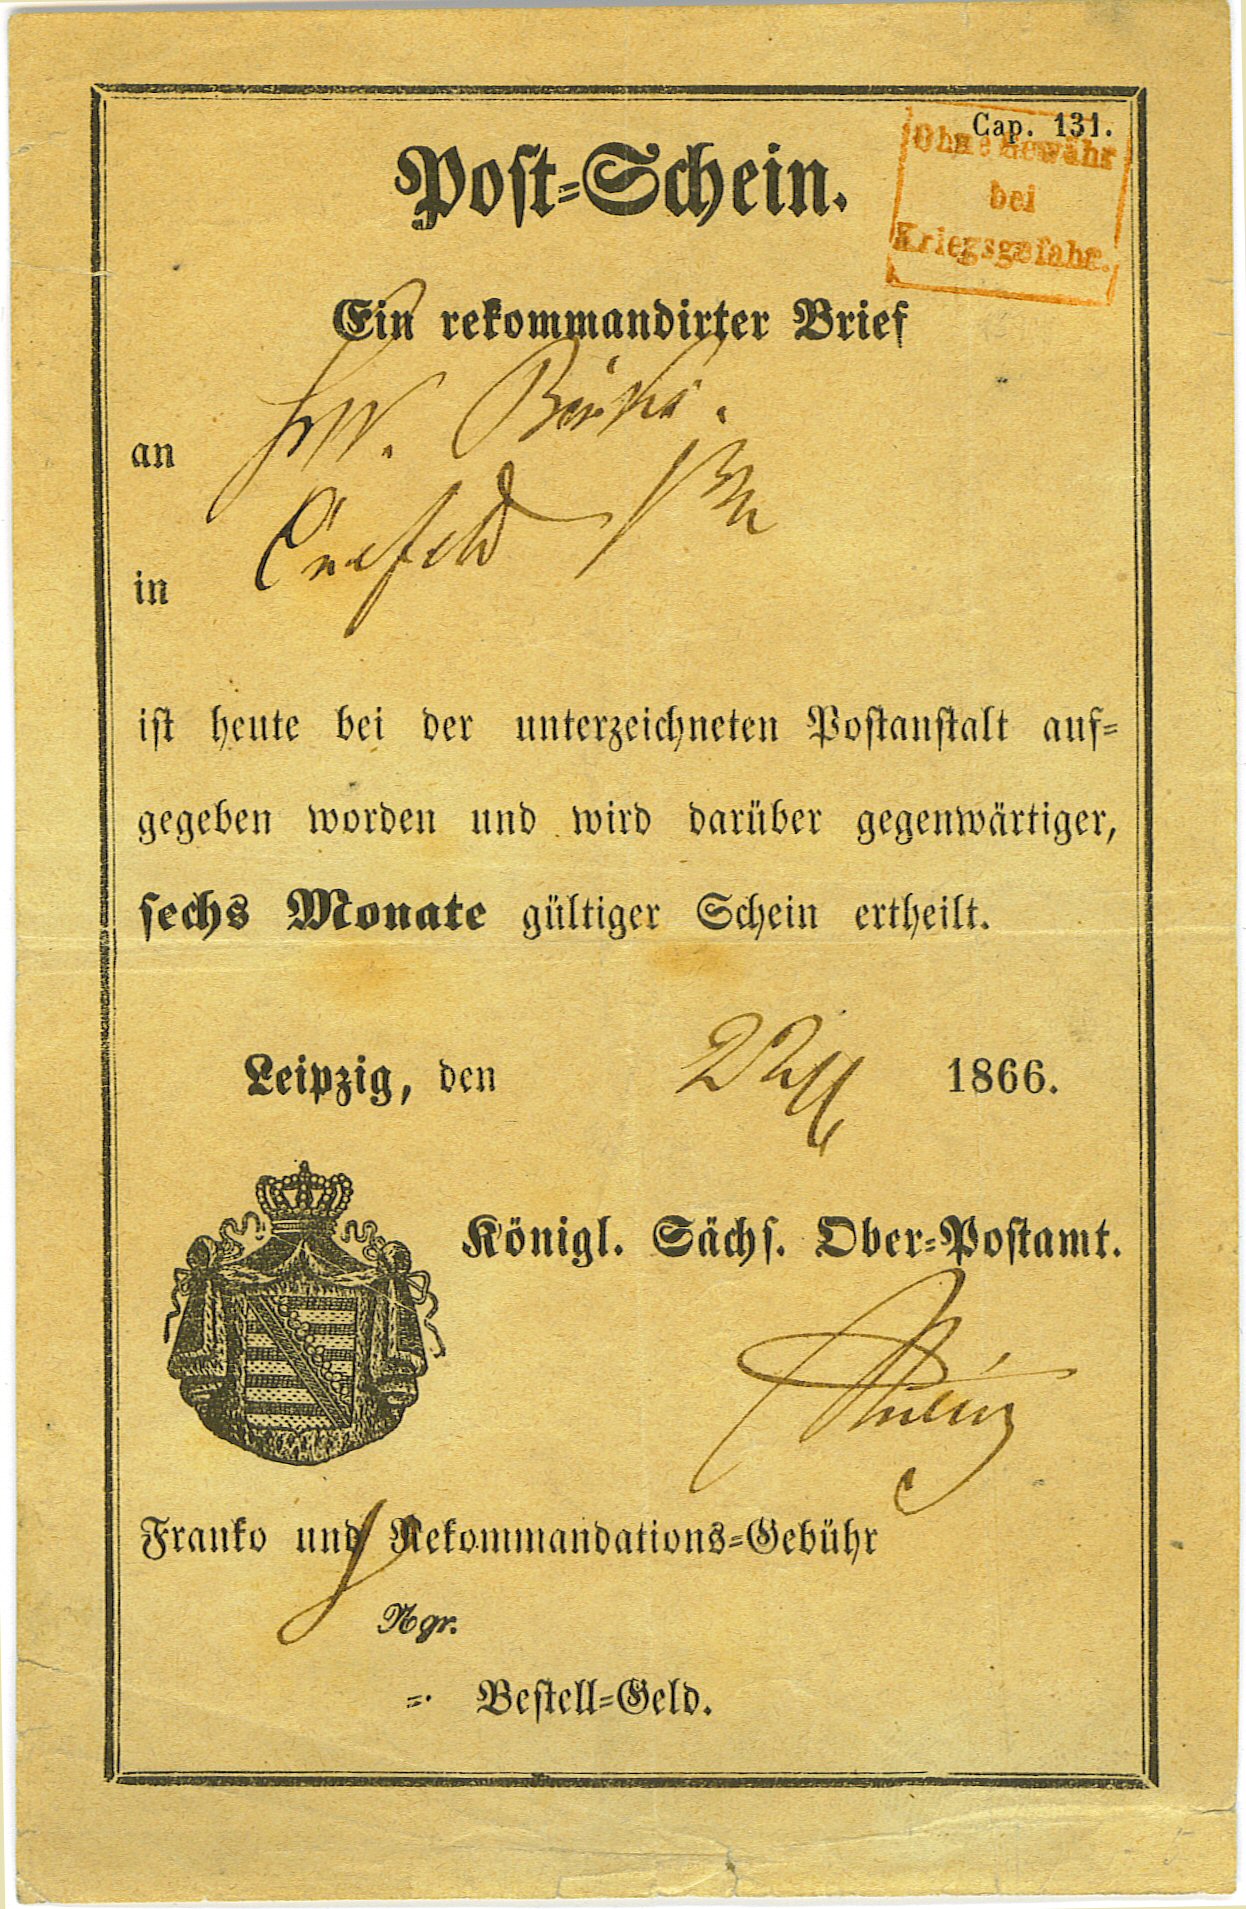 Cap. 131.
Ohne Gewähr
bei
Kriegsgefahr.
Post-Schein.
Ein rekommandirter Brief
an
in Crefeld
ist heute bei der unterzeichneten Postanstalt auf-
gegeben worden und wird darüber gegenwärtiger,
sechs Monate gültiger Schein ertheilt.
Leipzig, den 22/6 1866.
Königl. Sächs. Ober-Postamt.
Franko und Rekommandations-Gebühr
Ngr.
=. Bestell-Geld.